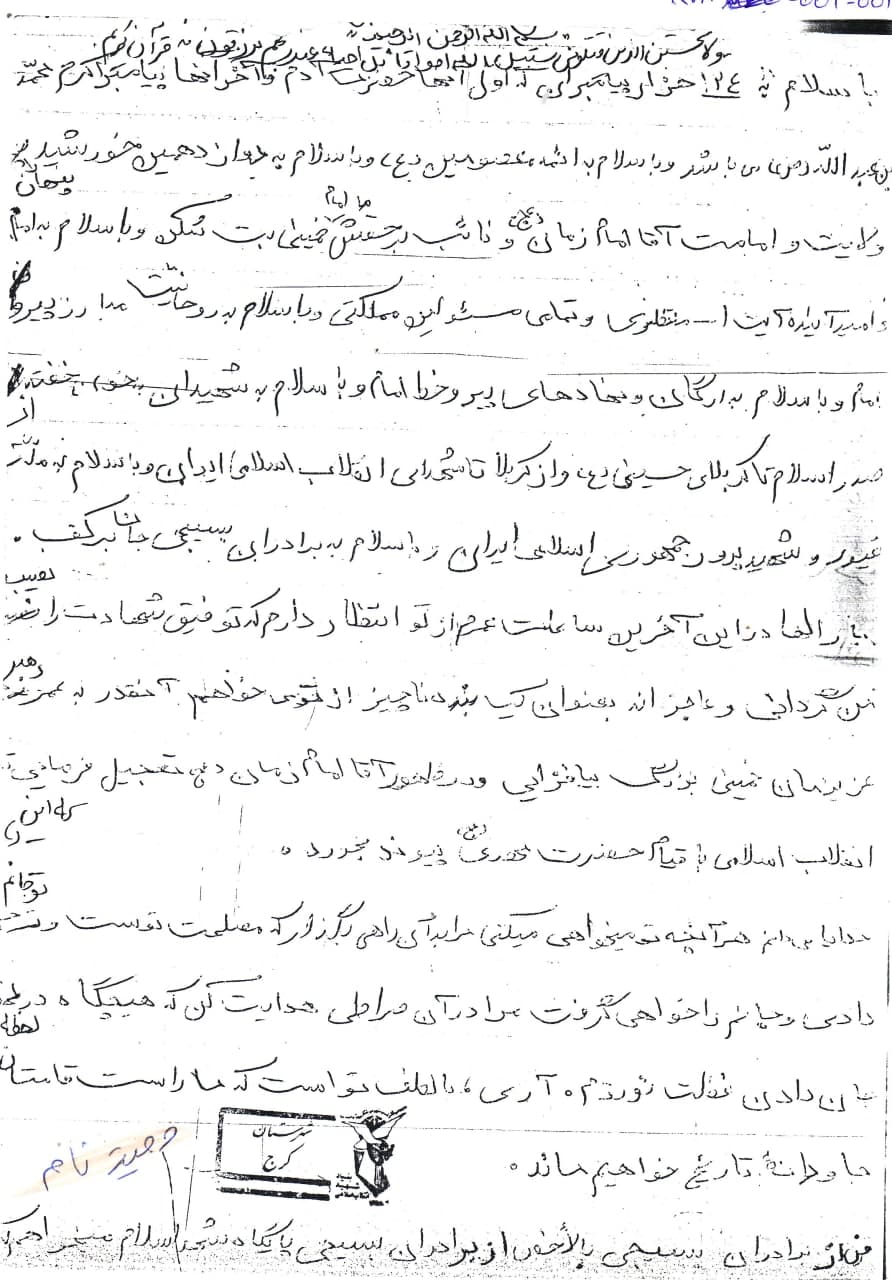 بسم الله الرحمن الرحیم
ولا تحسبن الذین قتلوا فی سبیل الله امواتا بل احیاء عند ربهم یرزقون قرآن کریم
با سلام به ۱۲۴ هزار پیامبران که اول آنها حضرت آدم و آخر آنها پیامبر اکرم محمد
بن عبدالله (ص) می باشد و با سلام به ائمه معصومین (ع) و با سلام به دوازدهمین خورشید پنهان
ولایت و امامت آقا امام زمان (عج) و نائب بر حقش امام خمینی بت شکن و با سلام به امام
و امید آینده آیت ا... منتظری و تمامی مسئولین مملکتی و با سلام به روحانیت مبارز پیرو
امام و با سلام به ارگانی و نهادهای پیرو خط امام و با سلام به شهیدان بخون خفته از
صدر اسلام تا کربلای حسینی (ع) و از کربلا تا شهدای انقلاب اسلامی ایران و با سلام به ملت
غیور و شهید پرور جمهوری اسلامی ایران و با سلام به برادران بسیجی جان بر کف .
بار الها در این آخرین ساعات عمرم از تو انتظار دارم که توفیق شهادت را نصیب
من گردانی و عاجزانه بعنوان یک بنده ناچیز از تو می خواهم آنقدر به عمر رهبر
عزیزمان خمینی بزرگ بیافزایی و در ظهور آقا امام زمان (عج) تعجیل فرمایی تا
انقلاب اسلامی با قیام حضرت مهدی (عج) پیوند بخورد .
خدایا می دانم هر آنچه تو میخواهی میکنی مرا بدان راهی بگزار که مصلحت توست و تو جانم
دادی و جانم را خواهی گرفت مرا در آن صراطی هدایت کن که هیچگاه در لحظه
جان دادن غفلت نورزم . آری ، با لطف تو است که ما راست قامتان
جاودانهٔ تاریخ خواهیم ماند .
شهرستان
کرج
وصیت نامه
من از برادران بسیجی بالأخص از برادران بسیجی پایگاه اسلام میخواهم که